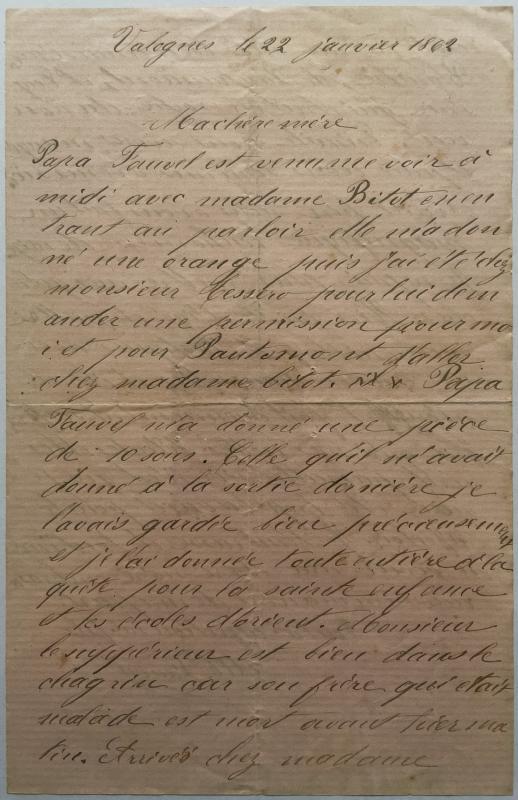 Valognes le 22 janvier 1862
Ma chère mère
Papa Fauvel est venu me voir à
midi avec madame Bitot en en
trant au parloir elle m'a don
né une orange puis j'ai été chez
monsieur pour lui dem
ander une permission pour mo
i et pour Pautomont d'aller
chez madame bitot. Papa
Fauvel m'a donné une pièce
de 10 sous. Celle qu'il m'avait
donné à la sortie dernière je
l'avais gardée bien précieusement
et je l'ai donnée toute entière à la
quête pour la sainte enfance
et les écoles d'orient. Monsieur
le suppérieur est bien dans le
chagrin car son frère qui était
malade est mort avant hier ma
tin. Arrivés chez madame